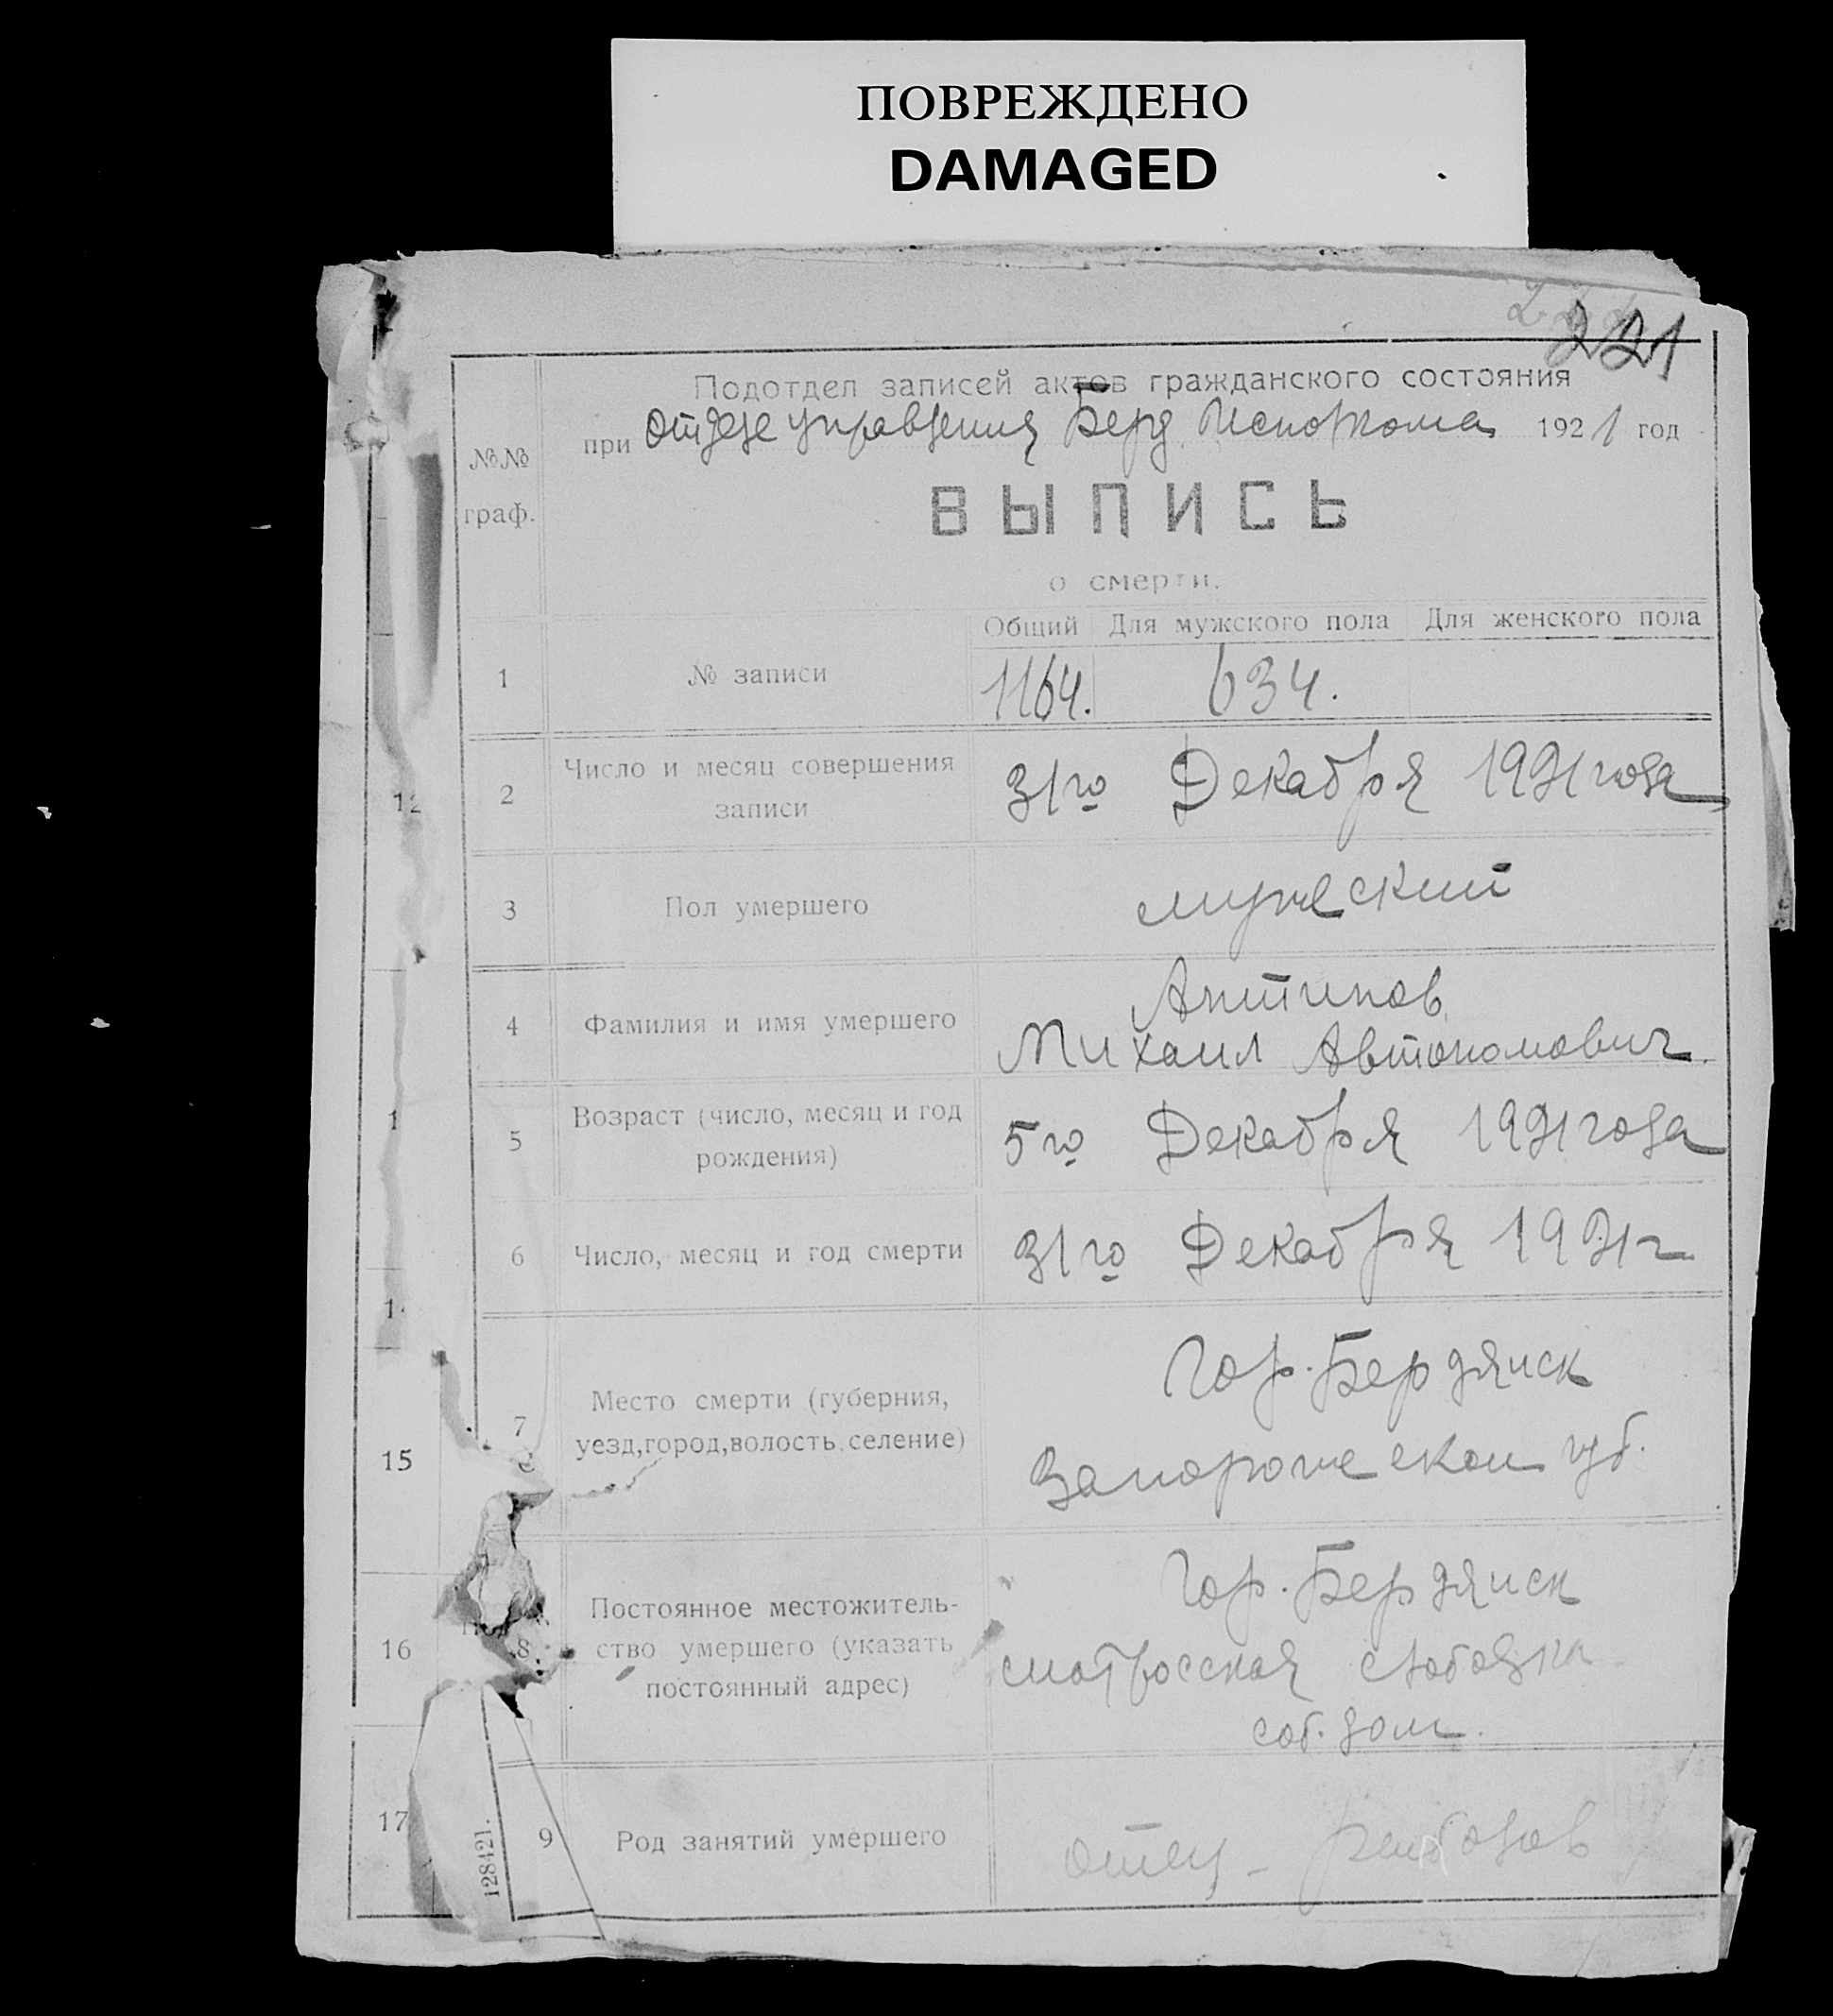 ПОВРЕЖДЕНО
DAMAGED
221
Подотдел записей актов гражданского состояния
при отделе управления Берд. Исполкома 1921 год
№№ граф.
ВЫПИСЬ
о смерти.
Общий Для мужского пола Для женского пола
1 № записи 1164. 634.
2 Число и месяц совершения
записи
31го Декабря 1921 года
3 Пол умершего мужеский
4 Фамилия и имя умершего
Антипов
Михаил Автономович.
5 Возраст (число, месяц и год
рождения)
5го Декабря 1921 года
6 Число, месяц и год смерти 31го Декабря 1921 г.
7 Место смерти (губерния,
уезд,город,волость,селение)
Гор. Бердянск
Запорожеской губ.
8 Постоянное местожитель-
ство умершего (указать
постоянный адрес)
Гор. Бердянск
матросская слободка
соб. дом.
9 Род занятий умершего отец -
12
1
1
15
16
17
128421.